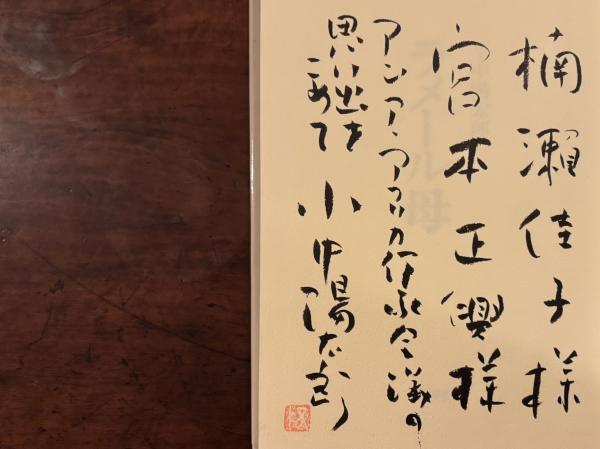 楠瀬佳子様
宮本正興様
アジア・アフリカ作家会議の
思い出を
こめて 小中陽太郎
ラメール母